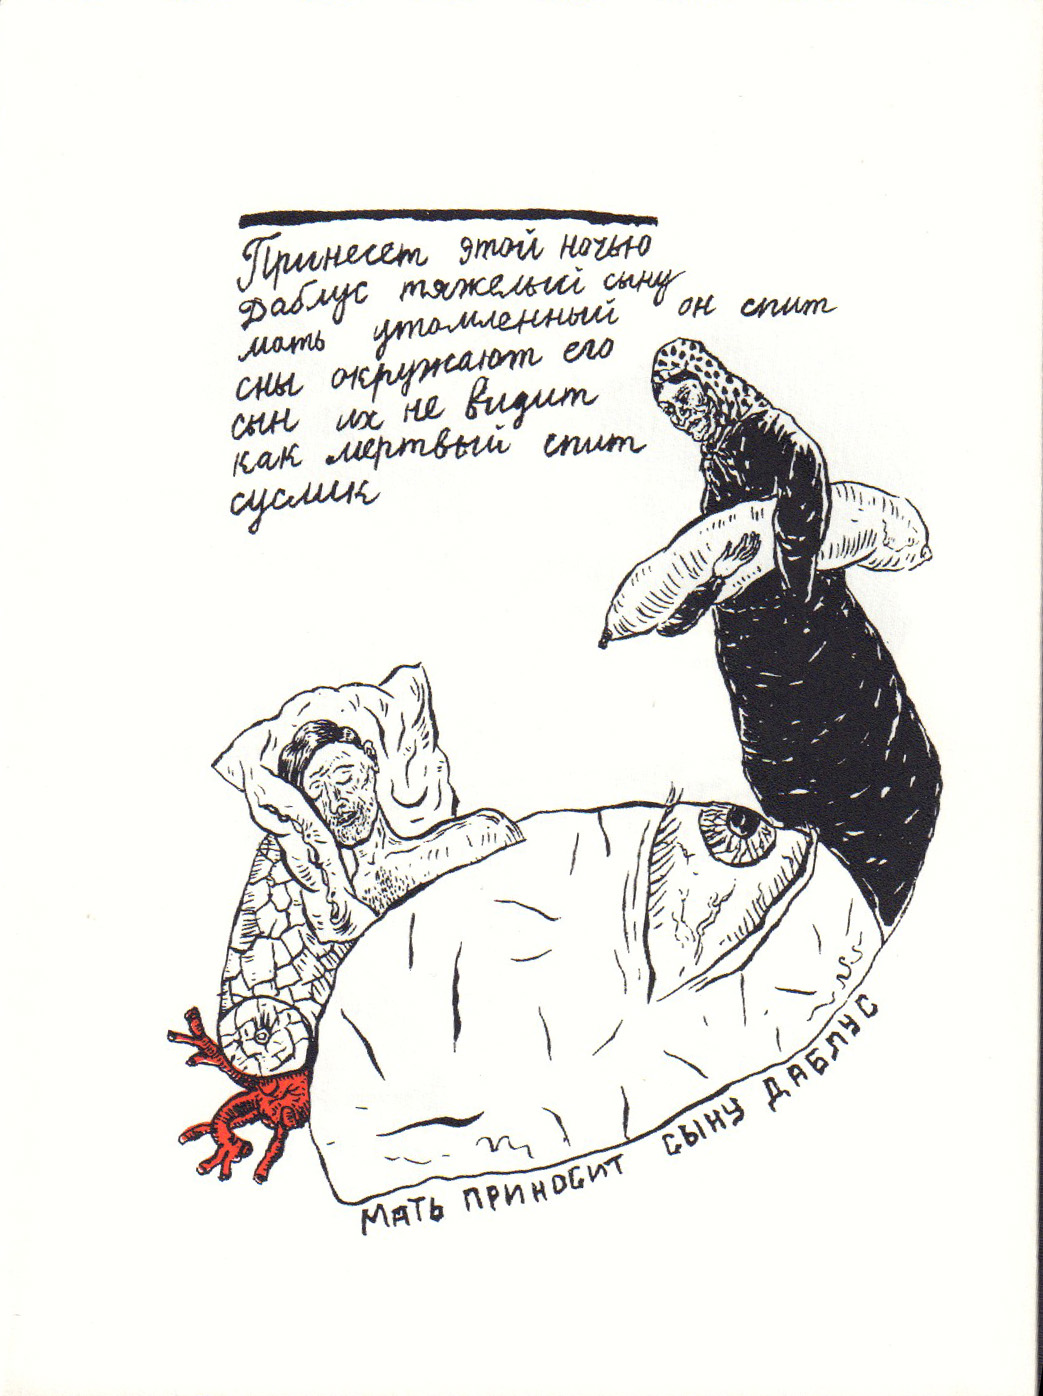 Принесет этой ночью
Даблус тяжелый сыну
мать утомленный он спит
сны окружают его
сын их не видит
как мертвый спит
суслик
МАТЬ ПРИНОСИТ СЫНУ ДАБЛУС